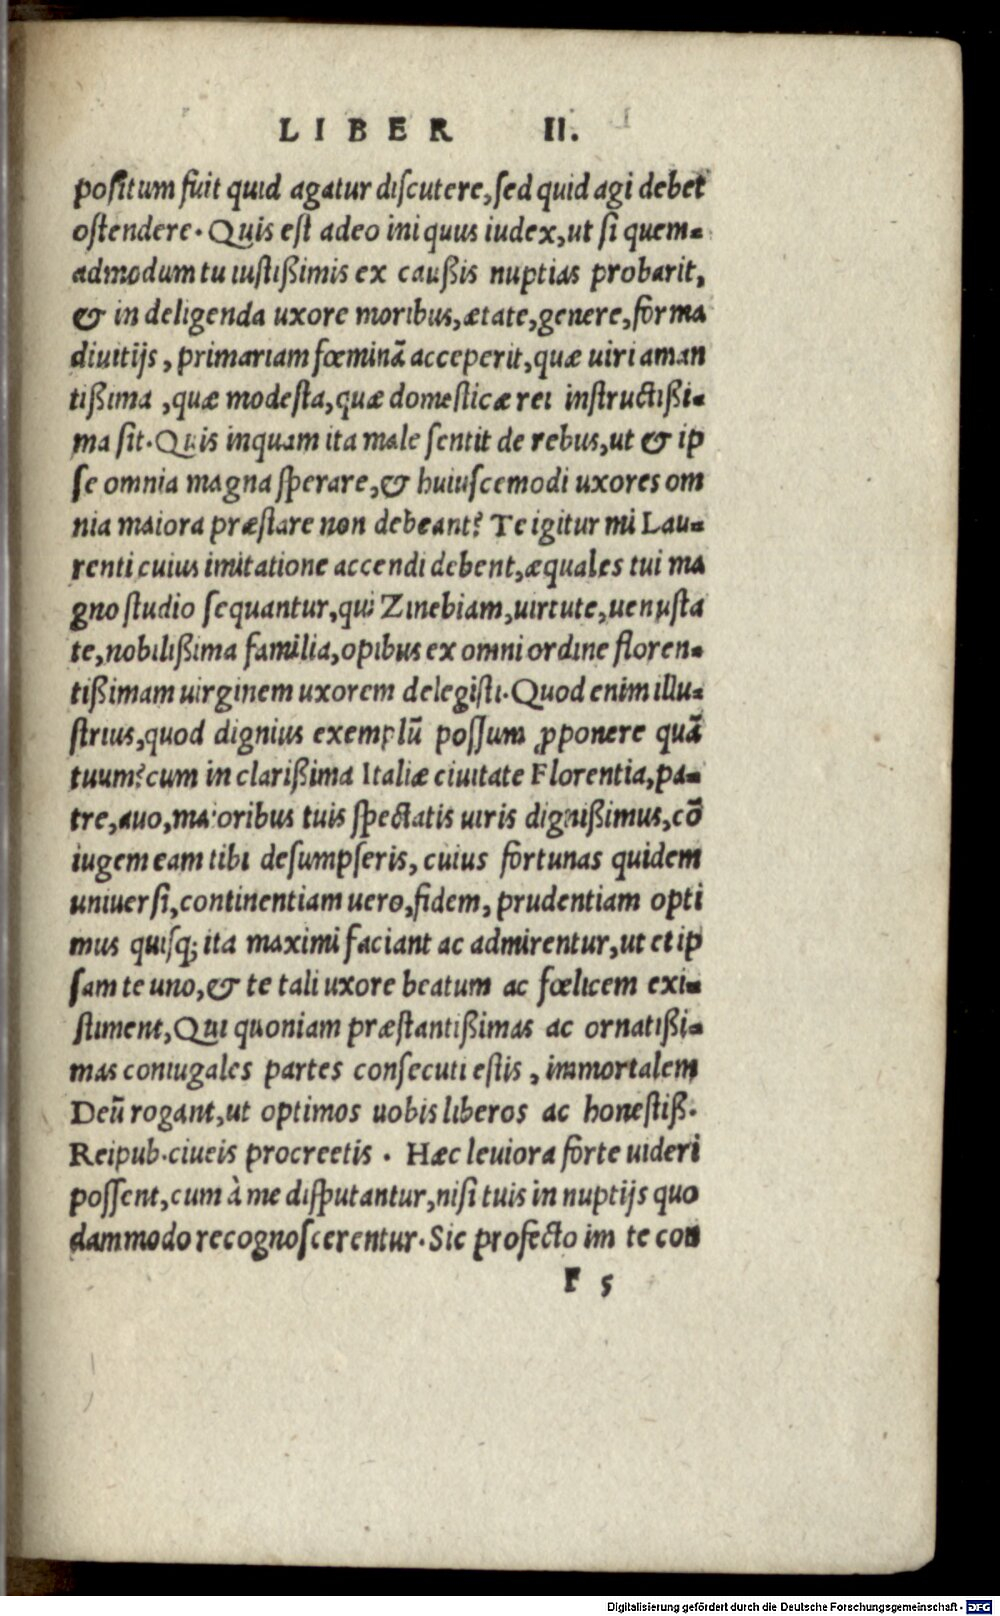 LIBER II.
positum fuit quid agatur discutere, sed quid agi debet
ostendere. Quis est adeo iniquus iudex, ut si quem-
admodum tu iustißimis ex caußis nuptias probarit,
& in deligenda uxore moribus, ætate, genere, forma
diuitijs, primariam fœminã acceperit, quæ uiri aman
tißima, quæ modesta, quæ domesticæ rei instructißi-
ma sit. Quis inquam ita male sentit de rebus, ut & ip
se omnia magna sperare, & huiuscemodi uxores om
nia maiora præstare non debeant? Te igitur mi Lau-
renti cuius imitatione accendi debent, æquales tui ma
gno studio sequantur, qui Zinebiam, uirtute, uenusta
te, nobilißima familia, opibus ex omni ordine floren-
tißimam uirginem uxorem delegisti. Quod enim illu-
strius, quod dignius exemplũ possum ꝓponere quã
tuum? cum in clarißima Italiæ ciuitate Florentia, pa-
tre, auo, maioribus tuis spectatis uiris dignißimus, cõ
iugem eam tibi desumpseris, cuius fortunas quidem
uniuersi, continentiam uero, fidem, prudentiam opti
mus quisq; ita maximi faciant ac admirentur, ut et ip
sam te uno, & te tali uxore beatum ac fœlicem exi-
stiment, Qui quoniam præstantißimas ac ornatißi-
mas coniugales partes consecuti estis, immortalem
Deũ rogant, ut optimos uobis liberos ac honestiß.
Reipub. ciueis procreetis. Hæc leuiora forte uideri
possent, cum à me disputantur, nisi tuis in nuptijs quo
dammodo recognoscerentur. Sic profecto im te con
F 5
Digitalisierung gefördert durch die Deutsche Forschungsgemeinschaft - DFG